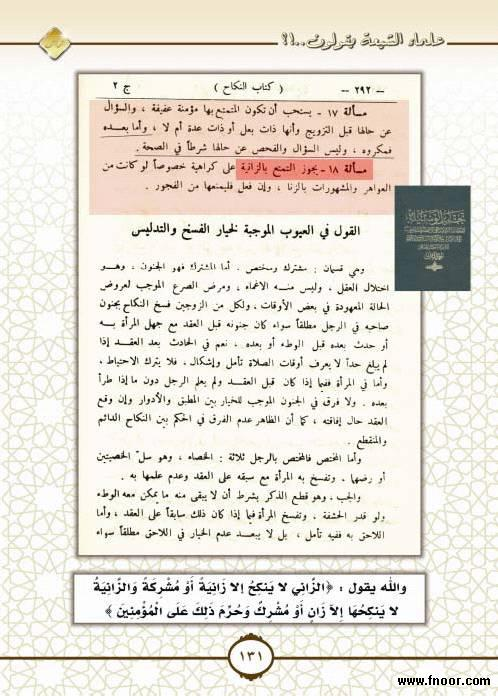 علماء الشيعة يقولون..!؟
— ٢٩٢ — ( كتاب النكاح ) ج ٢
مسألة ١٧ - يستحب أن تكون المتمتع بها مؤمنة عفيفة ، والسؤال
عن حالها قبل التزويج وأنها ذات بعل أو ذات عدة أم لا ، وأما بعده
فمكروه ، وليس السؤال والفحص عن حالها شرطاً في الصحة .
مسألة ١٨ - يجوز التمتع بالزانية على كراهية خصوصاً لو كانت من
العواهر والمشهورات بالزنا ، وإن فعل فليمنعها من الفجور .
القول في العيوب الموجبة لخيار الفسخ والتدليس
وهي قسمان : مشترك ومختص ، أما المشترك فهو الجنون ، وهو
اختلال العقل ، وليس منه الاغماء ، ومرض الصرع الموجب لعروض
الحالة المعهودة في بعض الأوقات ، ولكل من الزوجين فسخ النكاح بجنون
صاحبه في الرجل مطلقاً سواء كان جنونه قبل العقد مع جهل المرأة به
أو حدث بعده قبل الوطء أو بعده ، نعم في الحادث بعد العقد إذا
لم يبلغ حداً لا يعرف أوقات الصلاة تأمل وإشكال ، فلا يترك الاحتياط ،
وأما في المرأة ففيما إذا كان قبل العقد ولم يعلم الرجل دون ما إذا طرأ
بعده . ولا فرق في الجنون الموجب للخيار بين المطبق والأدوار وإن وقع
العقد حال إفاقته ، كما أن الظاهر عدم الفرق في الحكم بين النكاح الدائم
والمنقطع .
وأما المختص فالمختص بالرجل ثلاثة : الخصاء ، وهو سلّ الخصيتين
أو رضهما ، وتفسخ به المرأة مع سبقه على العقد وعدم علمها به .
والجب ، وهو قطع الذكر بشرط أن لا يبقى منه ما يمكن معه الوطء
ولو قدر الحشفة ، وتفسخ المرأة فيما إذا كان ذلك سابقاً على العقد ، وأما
اللاحق به ففيه تأمل ، بل لا يبعد عدم الخيار في اللاحق مطلقاً سواء
تحرير الوسيلة
والله يقول : ﴿الزَّانِي لا يَنكِحُ إلا زَانِيَةً أَوْ مُشْرِكَةً وَالزَّانِيَةُ
لا يَنكِحُهَا إلاَّ زَانٍ أَوْ مُشْرِكٌ وَحُرِّمَ ذَلِكَ عَلَى الْمُؤْمِنِينَ ﴾
١٣١
www.fnoor.com